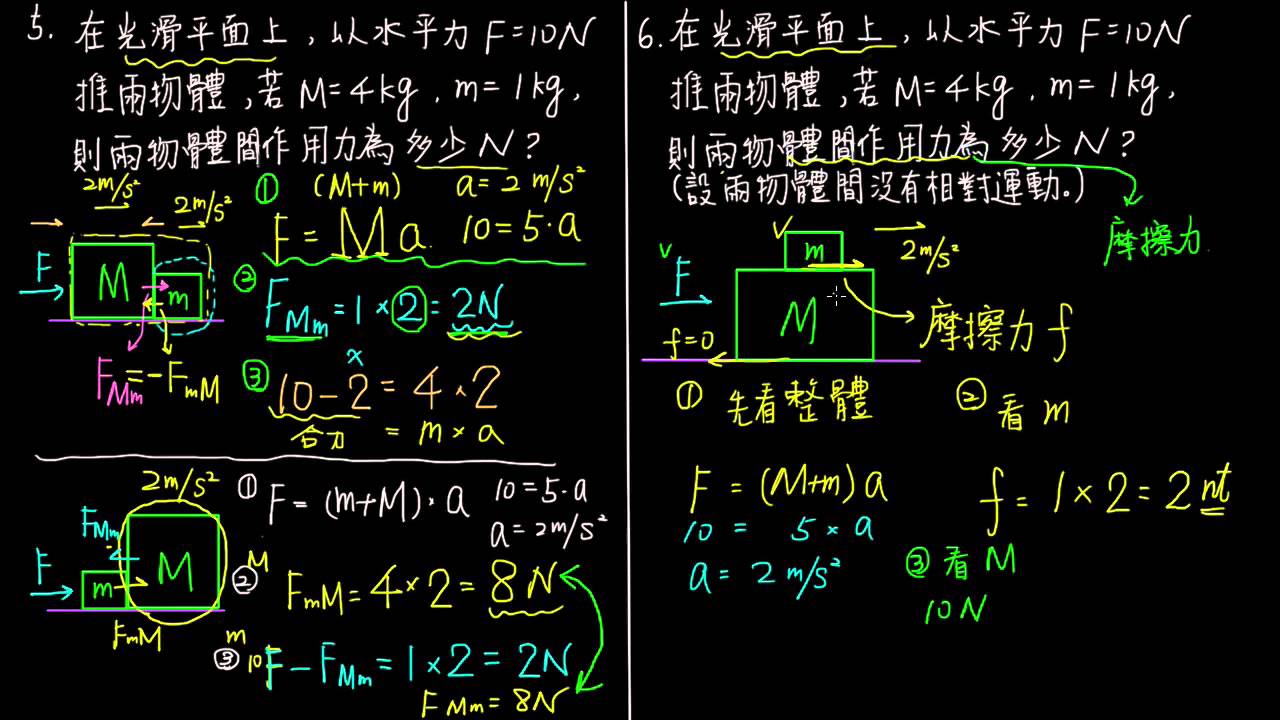 5. 在光滑平面上，以水平力 F=10N
推兩物體，若 M=4kg . m=1kg，
則兩物體間作用力為多少 N？
2m/s²
2m/s²
F
M
m
F_Mm = -F_mM
① (M+m) a=2 m/s²
F = M a 10=5·a
② F_Mm = 1×2 = 2N
x
③ 10-2 = 4×2
合力 = m×a
2m/s²
F_Mm
F
m
M
F_mM
① F = (m+M)·a 10=5·a
a=2m/s²
M
② F_mM = 4×2 = 8N
m
③ 10 F - F_Mm = 1×2 = 2N
F_Mm = 8N
6. 在光滑平面上，以水平力 F=10N
推兩物體，若 M=4kg . m=1kg，
則兩物體間作用力為多少 N？
(設兩物體間沒有相對運動。)
摩擦力
v
v
F
m
M
2m/s²
f=0
摩擦力 f
① 先看整體
F = (M+m) a
10 = 5 × a
a = 2 m/s²
② 看 m
f = 1×2 = 2 nt
③ 看 M
10N